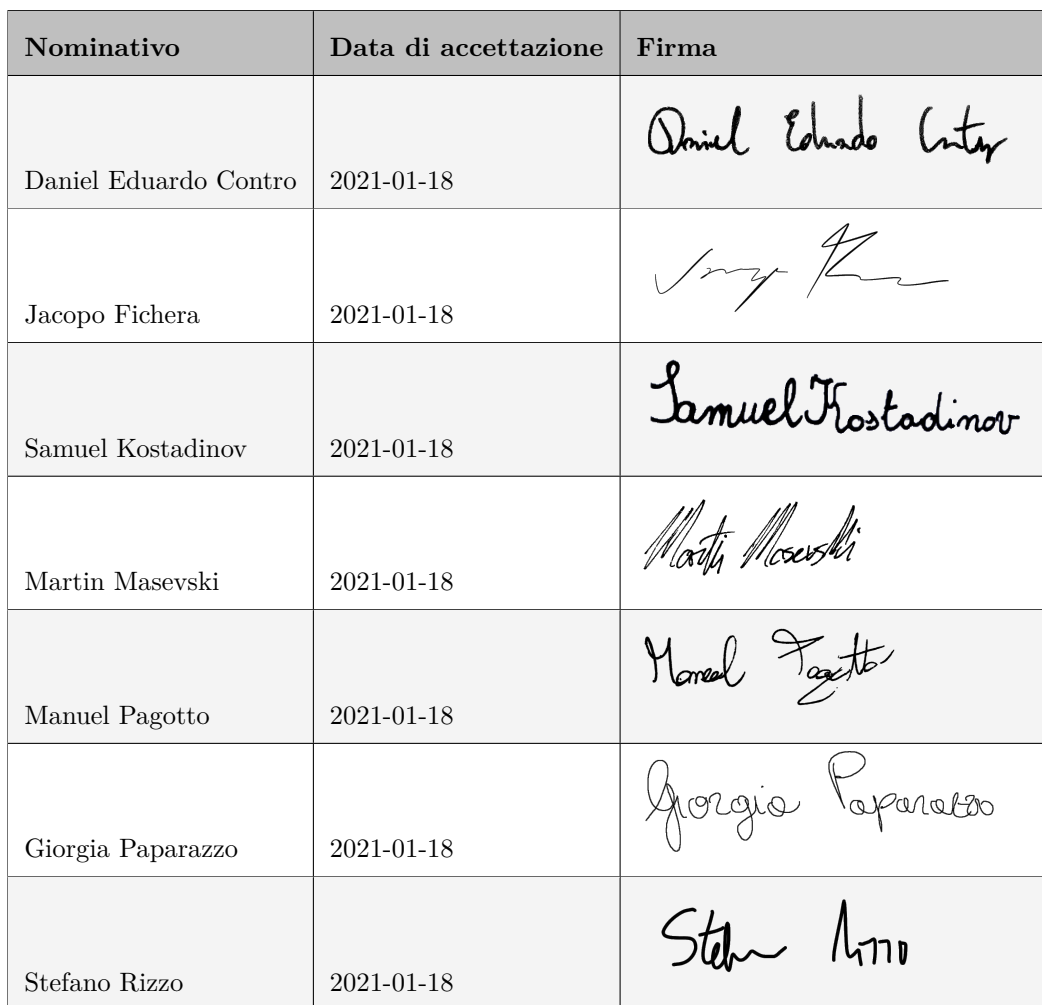 Nominativo Data di accettazione Firma
Daniel Eduardo Contro 2021-01-18 Daniel Eduardo Contro
Jacopo Fichera 2021-01-18
Samuel Kostadinov 2021-01-18 Samuel Kostadinov
Martin Masevski 2021-01-18 Martin Masevski
Manuel Pagotto 2021-01-18 Manuel Pagotto
Giorgia Paparazzo 2021-01-18 Giorgia Paparazzo
Stefano Rizzo 2021-01-18 Stefano Rizzo